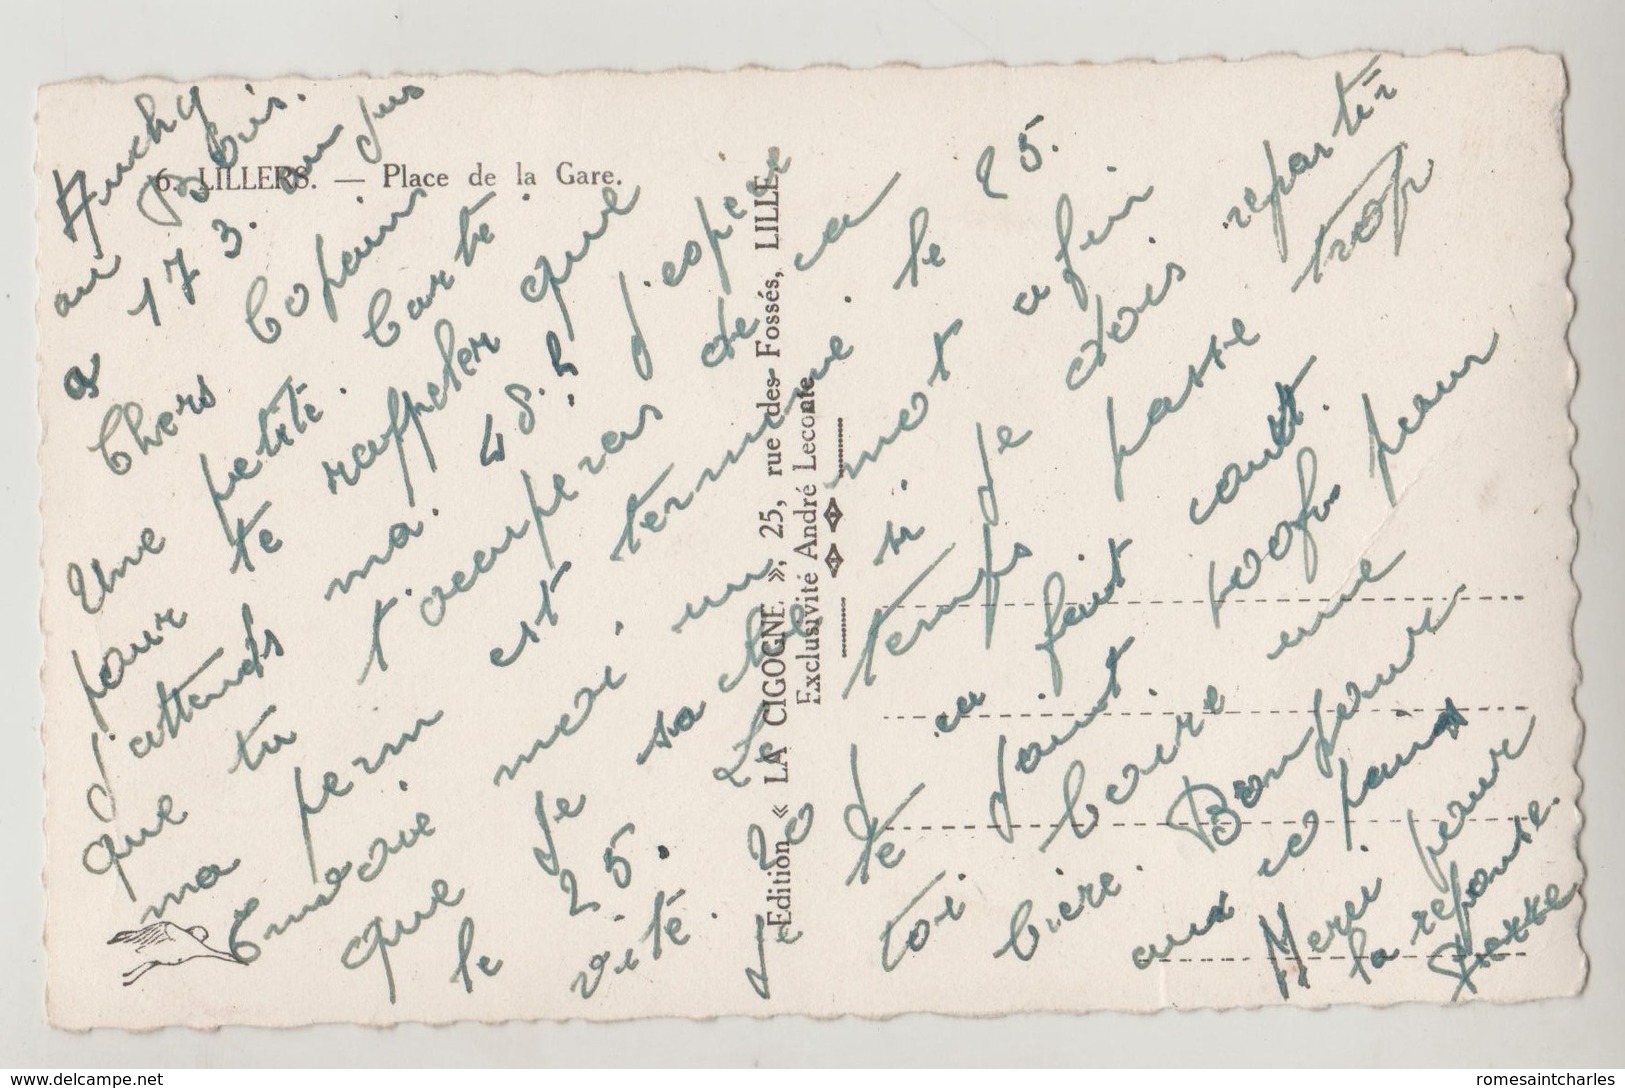 Auchy
au Bois.
a 17 3. au jus
Chers Copains
Une petite. Carte.
pour te rappeler que
j'attends ma. 48. h, j'esper
que tu t'occuperas de ca
ma perm est terminé. le 25.
Envoie moi. un mot afin
que je sache si je dois repartir
le 25. Le temps passe trop
vite. ca fait court.
Je te joint 100fr pour
toi. boire une
bière. Bonjour
aux copains
Merci. pour
la reponse.
6. LILLERS. — Place de la Gare.
Edition « LA CIGOGNE », 25, rue des Fossés, LILLE
Exclusivité André Leconte
www.delcampe.net
romesaintcharles